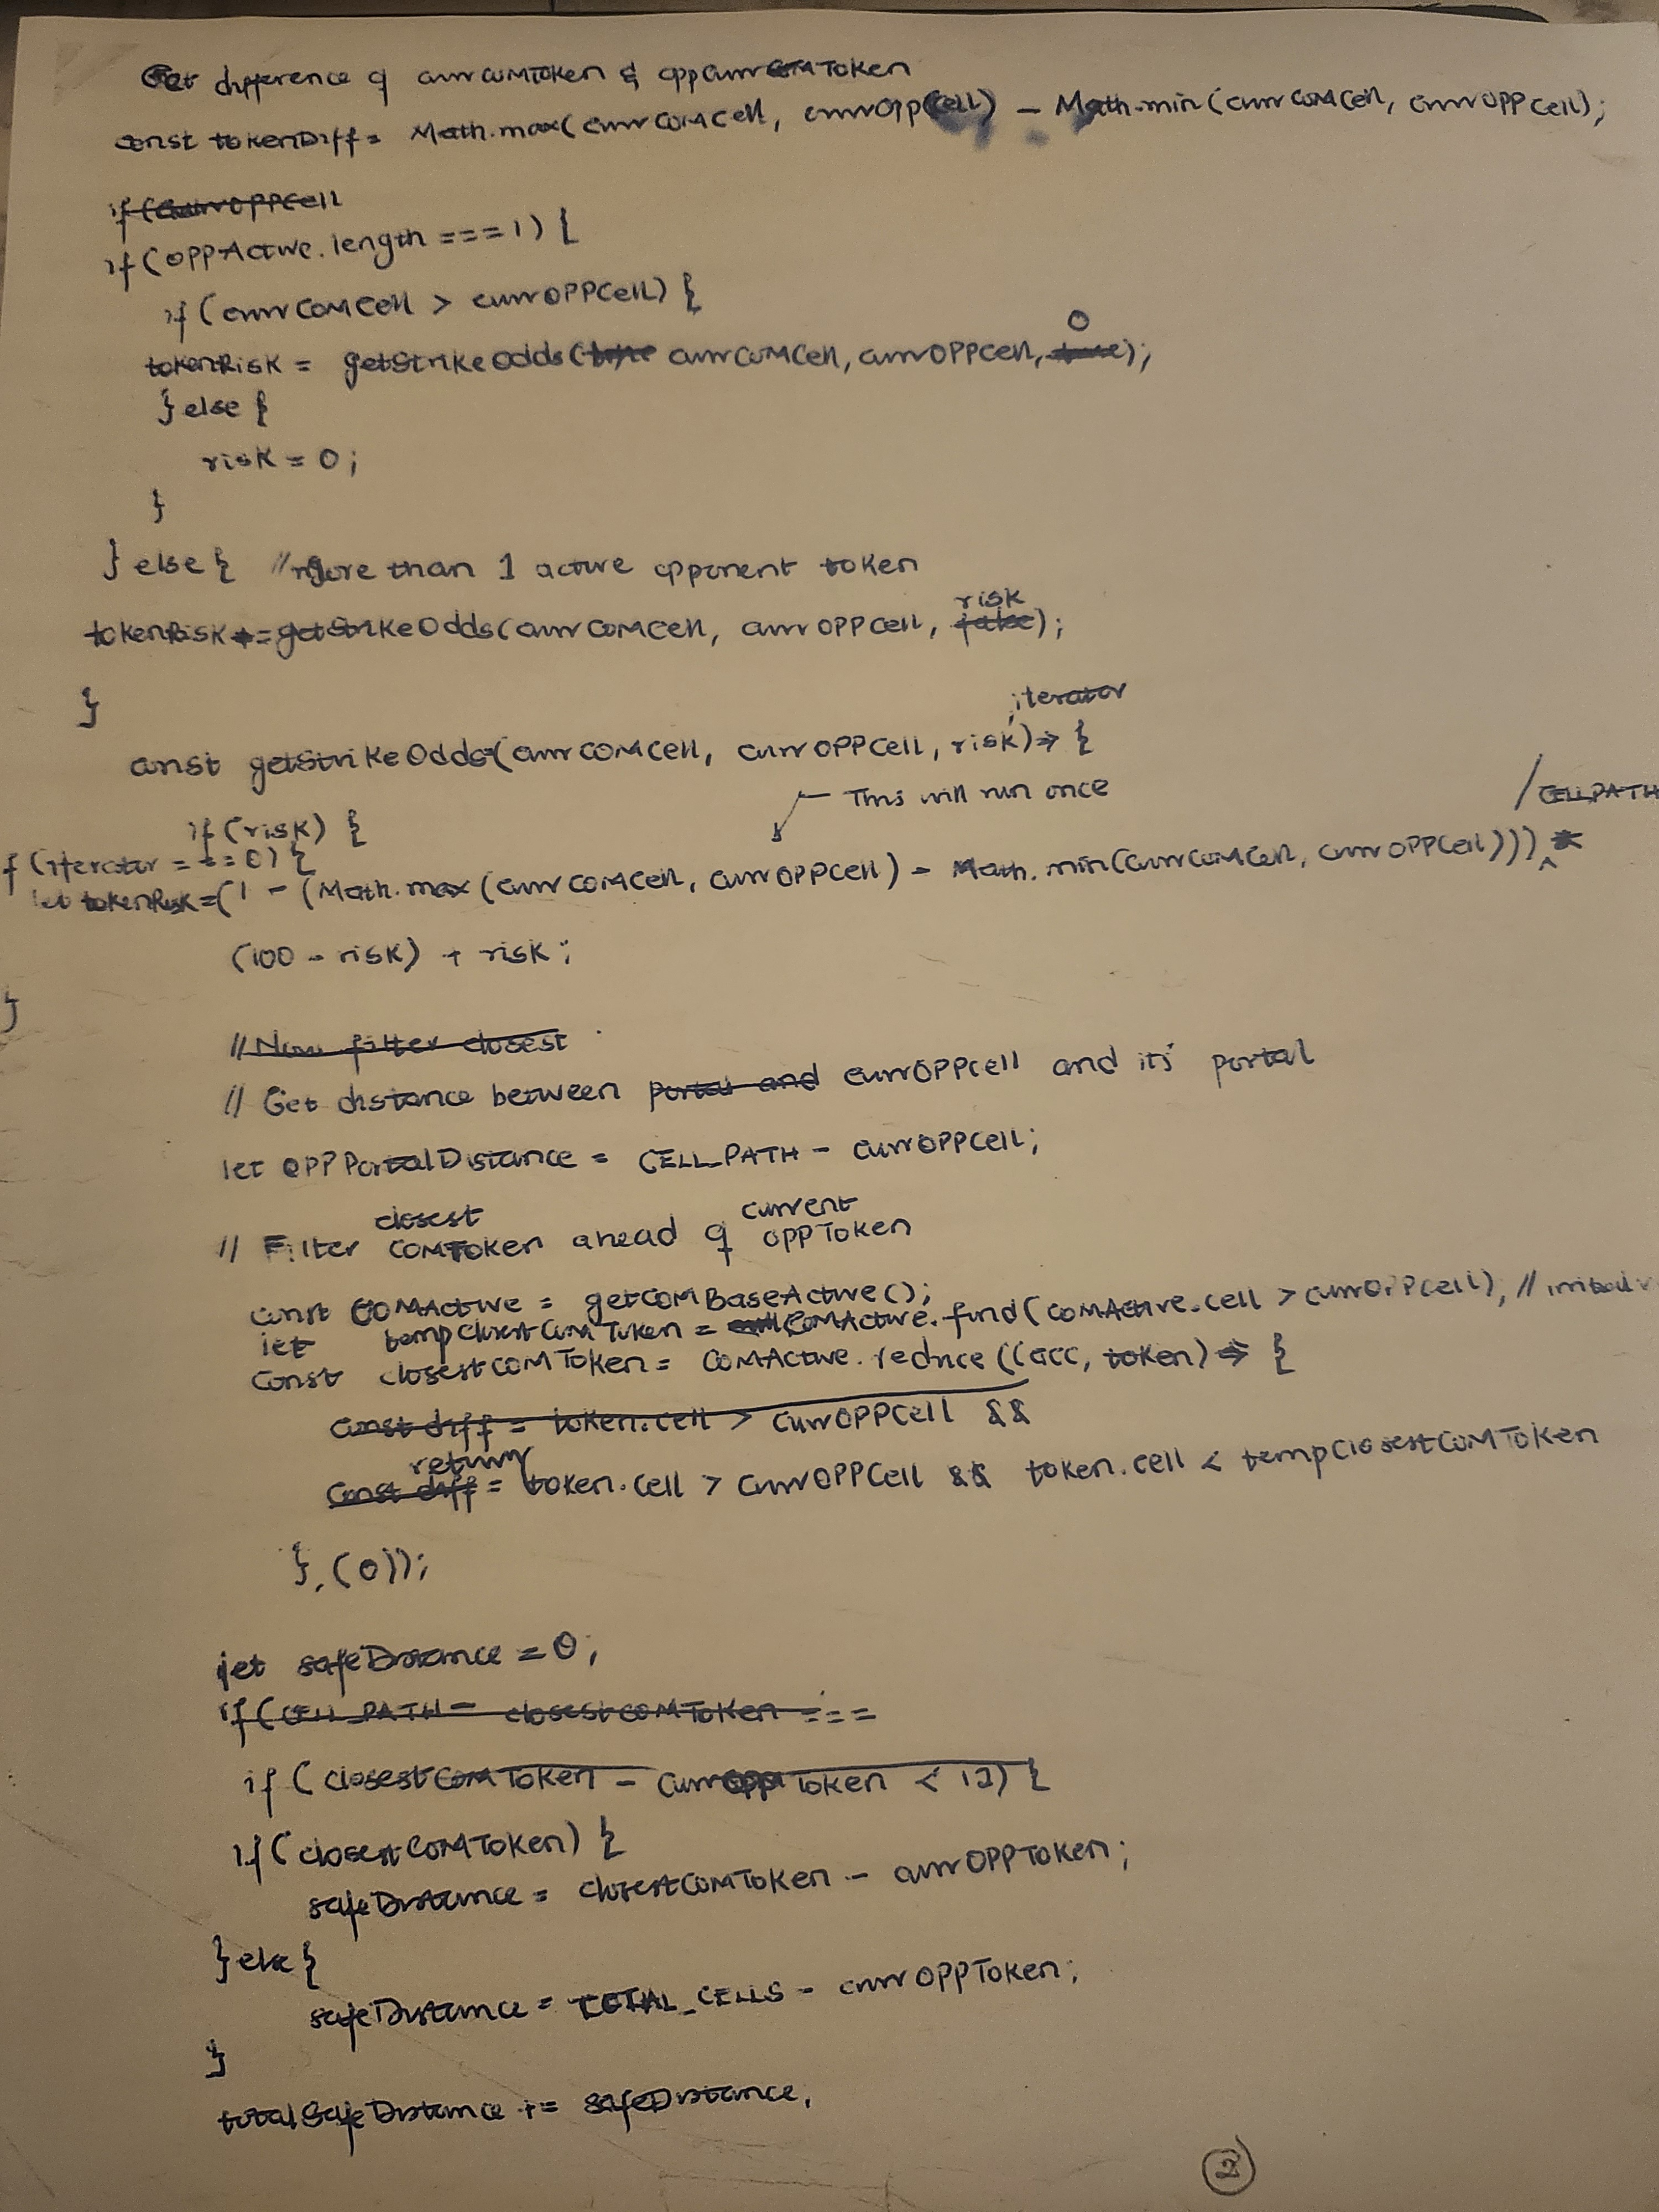 Get difference of currCOMToken & oppCurrToken
const tokenDiff = Math.max(currCOMCell, currOppCell) - Math.min(currCOMCell, currOPPCell);
if(currOPPCell
if(OPPActive.length === 1) {
if (currCOMCell > currOPPCell) {
0
tokenRisk = getStrikeOdds(true currCOMCell, currOPPCell, true);
} else {
risk = 0;
}
} else { // more than 1 active opponent token
risk
tokenRisk += getStrikeOdds(currCOMCell, currOPPCell, false);
}
, iterator
const getStrikeOdds = (currCOMCell, currOPPCell, risk) => {
This will run once
/CELL_PATH
if (risk) {
if (iterator === 0) {
let tokenRisk = (1 - (Math.max (currCOMCell, currOPPCell) - Math.min(currCOMCell, currOPPCell))) *
(100 - risk) + risk;
}
// Now filter closest
// Get distance between portal and currOPPCell and its' portal
let OPPPortalDistance = CELL_PATH - currOPPCell;
closest current
// Filter COMToken ahead of OPPToken
const COMActive = getCOMBaseActive();
let tempClosestCOMToken = COMActive.find(COMActive.cell > currOPPCell); //
const closestCOMToken = COMActive.reduce((acc, token) => {
const diff = token.cell > currOPPCell &&
return
const diff = token.cell > currOPPCell && token.cell < tempClosestCOMToken
}, (0));
let safeDistance = 0;
if (CELL_PATH - closestCOMToken ===
if (closestCOMToken - currOPPToken < 12) {
if (closestCOMToken) {
safeDistance = closestCOMToken - currOPPToken;
} else {
safeDistance = TOTAL_CELLS - currOPPToken;
}
totalSafeDistance += safeDistance;
2